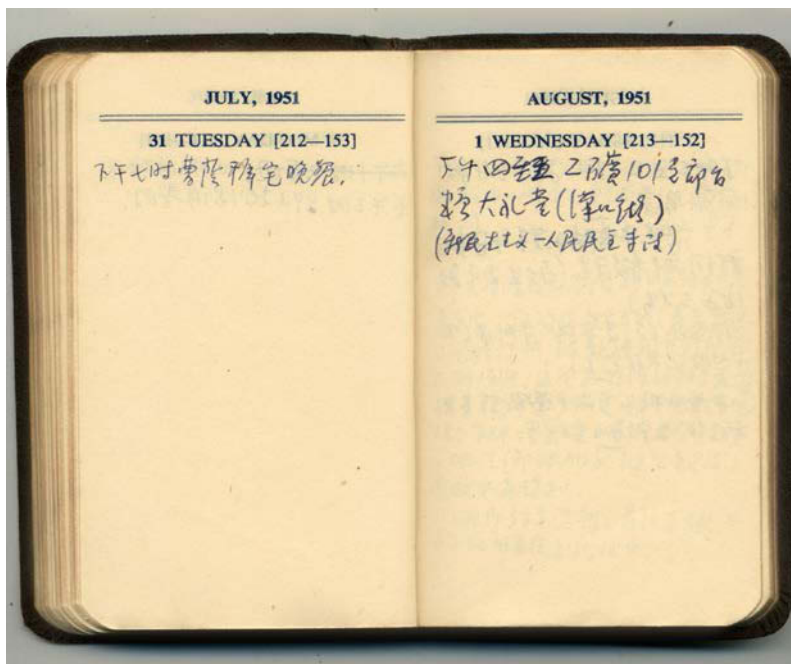 JULY, 1951
31 TUESDAY [212—153]
下午七时曹荫穉宅晚餐.
AUGUST, 1951
1 WEDNESDAY [213—152]
下午四 工礦101 部台
大礼堂(漢口路)
(新民主主义—人民民主专政)